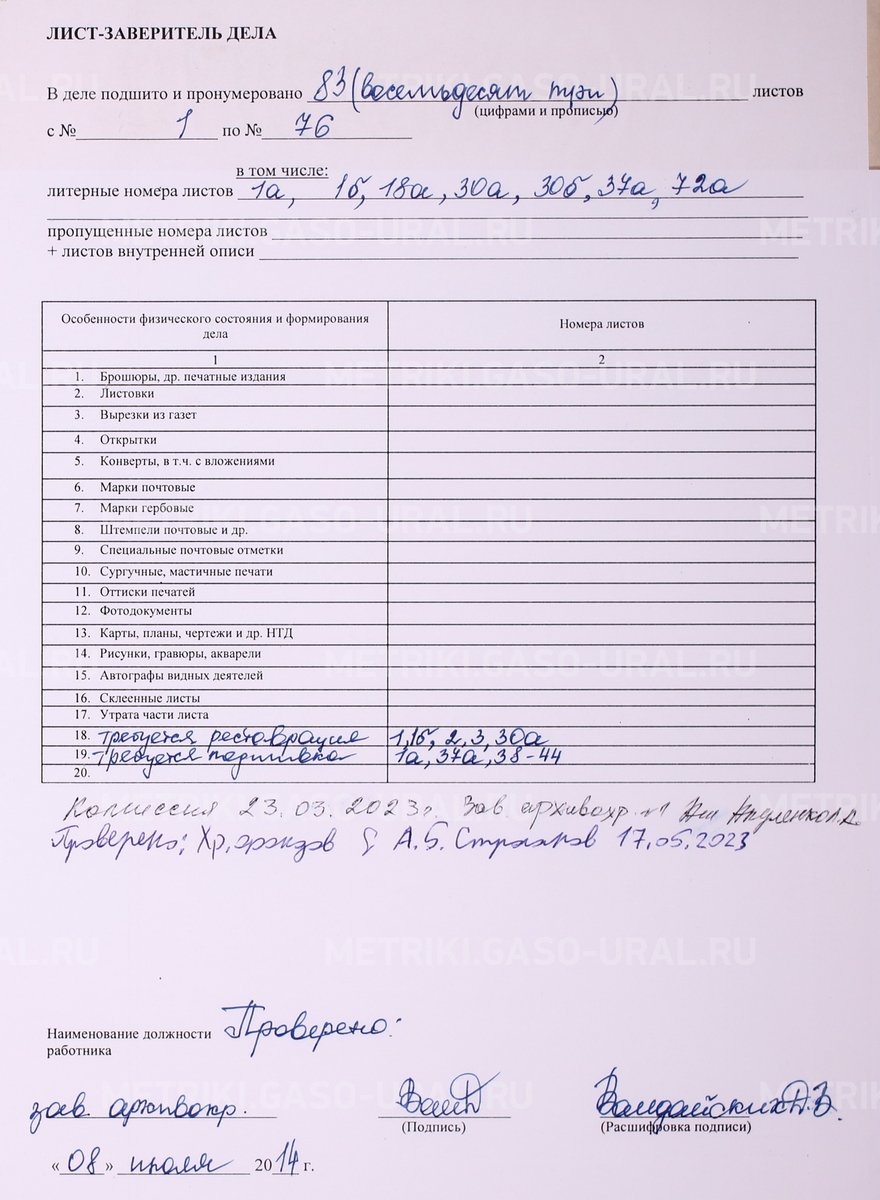 ЛИСТ-ЗАВЕРИТЕЛЬ ДЕЛА
В деле подшито и пронумеровано 83 (восемьдесят три) листов
(цифрами и прописью)
с № 1 по № 76
в том числе:
литерные номера листов 1а, 1б, 18а, 30а, 30б, 37а, 72а
пропущенные номера листов
+ листов внутренней описи
Особенности физического состояния и формирования дела Номера листов
1 2
1. Брошюры, др. печатные издания
2. Листовки
3. Вырезки из газет
4. Открытки
5. Конверты, в т.ч. с вложениями
6. Марки почтовые
7. Марки гербовые
8. Штемпели почтовые и др.
9. Специальные почтовые отметки
10. Сургучные, мастичные печати
11. Оттиски печатей
12. Фотодокументы
13. Карты, планы, чертежи и др. НТД
14. Рисунки, гравюры, акварели
15. Автографы видных деятелей
16. Склеенные листы
17. Утрата части листа
18. требуется реставрация 1,1б, 2, 3, 30а
19. требуется подшивка 1а, 37а, 38-44
20.
Комиссия 23.03.2023г. Зав. архивохр.
Проверено: Хр. фондов А.Б. 17.05.2023
Наименование должности Проверено:
работника
зав. архивохр.
(Подпись) (Расшифровка подписи)
«08» июля 2014 г.
METRIKI.GASO-URAL.RU